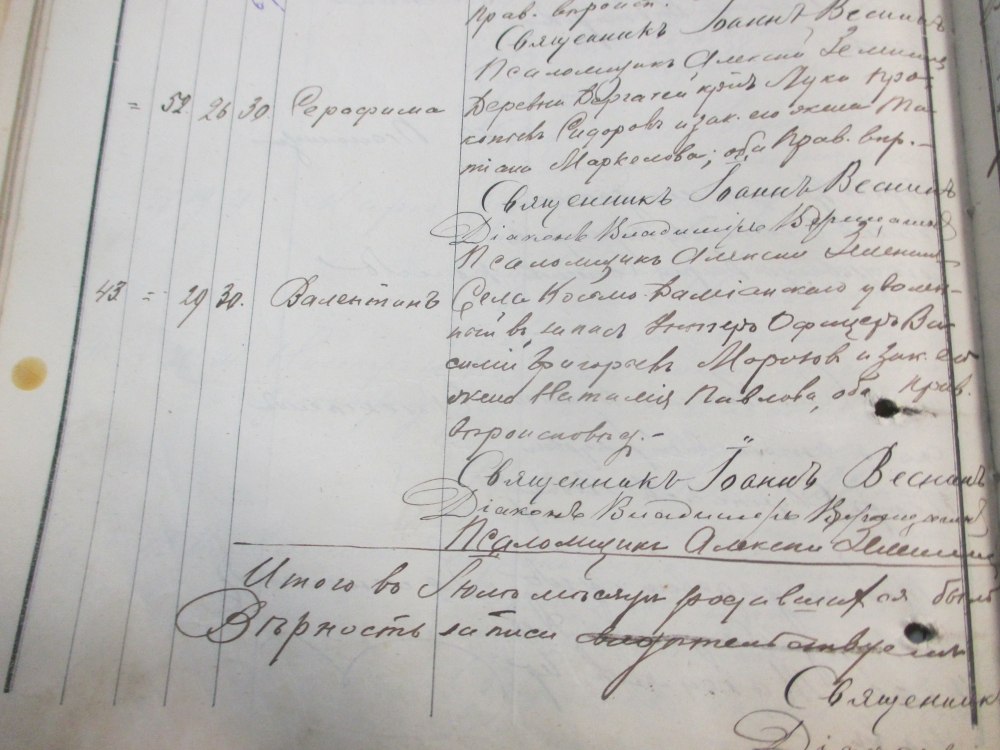 прав. вѣроисп.
Священникъ Іоаннъ Веснинъ
Псаломщикъ Алексий
= 52. 26 30. Серафима Деревни крест. Луки Про-
копьевъ Сидоровъ и зак. его жена Та-
тіана Маркелова; оба прав. вѣр. –
Священникъ Іоаннъ Веснинъ
Діаконъ Владимиръ
Псаломщикъ Алексий
43 = 29 30. Валентинъ Села Косьмо-Даміанскаго уволен-
ный въ запасъ Унтеръ Офицеръ Ва-
силій Григорьевъ Морозовъ и зак. его
жена Наталія Павлова, оба прав.
вѣроисповѣд. –
Священникъ Іоаннъ Веснинъ
Діаконъ Владимиръ
Псаломщикъ Алексий
Итого въ Іюлѣ мѣсяцѣ родившихся было
Вѣрность записи свидѣтельствуемъ
Священникъ
Діаконъ